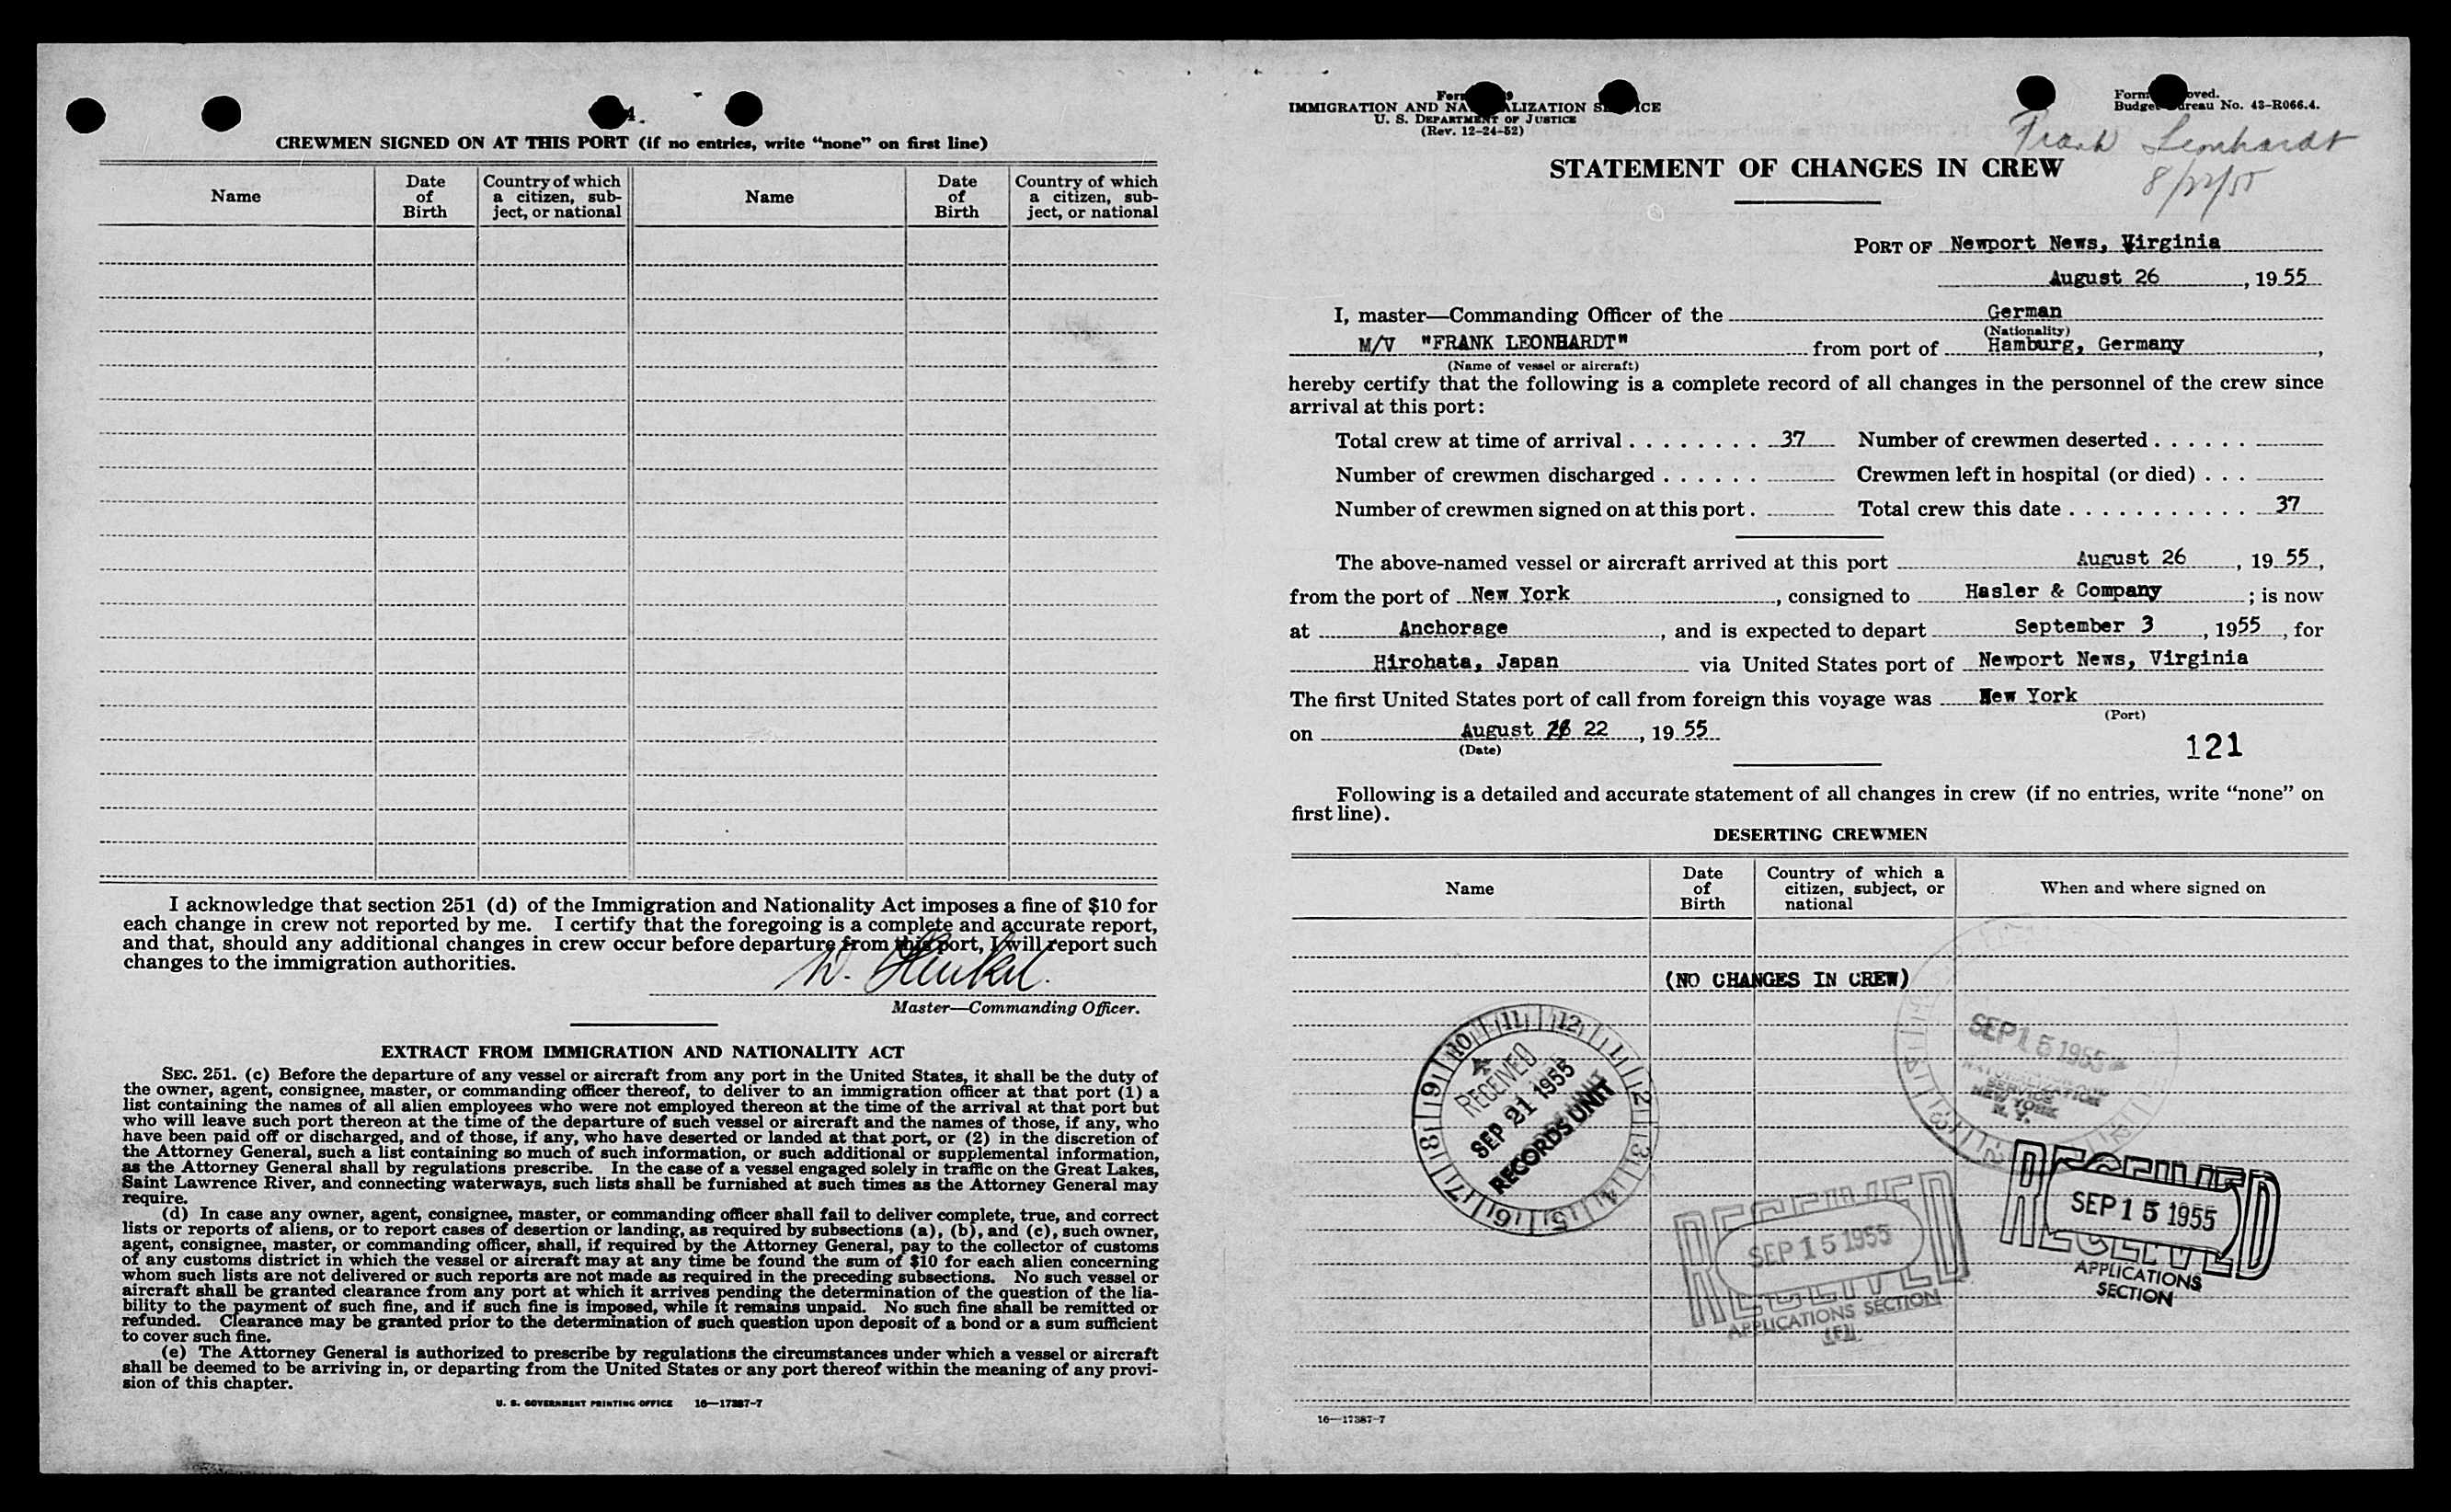 4.
CREWMEN SIGNED ON AT THIS PORT (if no entries, write “none” on first line)
Name
Date
of
Birth
Country of which
a citizen, sub-
ject, or national
Name
Date
of
Birth
Country of which
a citizen, sub-
ject, or national
I acknowledge that section 251 (d) of the Immigration and Nationality Act imposes a fine of $10 for
each change in crew not reported by me. I certify that the foregoing is a complete and accurate report,
and that, should any additional changes in crew occur before departure from this port, I will report such
changes to the immigration authorities.
W. Henkel.
Master—Commanding Officer.
EXTRACT FROM IMMIGRATION AND NATIONALITY ACT
SEC. 251. (c) Before the departure of any vessel or aircraft from any port in the United States, it shall be the duty of
the owner, agent, consignee, master, or commanding officer thereof, to deliver to an immigration officer at that port (1) a
list containing the names of all alien employees who were not employed thereon at the time of the arrival at that port but
who will leave such port thereon at the time of the departure of such vessel or aircraft and the names of those, if any, who
have been paid off or discharged, and of those, if any, who have deserted or landed at that port, or (2) in the discretion of
the Attorney General, such a list containing so much of such information, or such additional or supplemental information,
as the Attorney General shall by regulations prescribe. In the case of a vessel engaged solely in traffic on the Great Lakes,
Saint Lawrence River, and connecting waterways, such lists shall be furnished at such times as the Attorney General may
require.
(d) In case any owner, agent, consignee, master, or commanding officer shall fail to deliver complete, true, and correct
lists or reports of aliens, or to report cases of desertion or landing, as required by subsections (a), (b), and (c), such owner,
agent, consignee, master, or commanding officer, shall, if required by the Attorney General, pay to the collector of customs
of any customs district in which the vessel or aircraft may at any time be found the sum of $10 for each alien concerning
whom such lists are not delivered or such reports are not made as required in the preceding subsections. No such vessel or
aircraft shall be granted clearance from any port at which it arrives pending the determination of the question of the lia-
bility to the payment of such fine, and if such fine is imposed, while it remains unpaid. No such fine shall be remitted or
refunded. Clearance may be granted prior to the determination of such question upon deposit of a bond or a sum sufficient
to cover such fine.
(e) The Attorney General is authorized to prescribe by regulations the circumstances under which a vessel or aircraft
shall be deemed to be arriving in, or departing from the United States or any port thereof within the meaning of any provi-
sion of this chapter.
U. S. GOVERNMENT PRINTING OFFICE 16—17387-7
IMMIGRATION AND
U. S. DEPARTMENT OF JUSTICE
(Rev. 12-24-52)
Budget Bureau No. 43-R066.4.
Frank Leonhardt
8/22/55
STATEMENT OF CHANGES IN CREW
PORT OF Newport News, Virginia
August 26, 1955
I, master—Commanding Officer of the German
(Nationality)
M/V "FRANK LEONHARDT" from port of Hamburg, Germany,
(Name of vessel or aircraft)
hereby certify that the following is a complete record of all changes in the personnel of the crew since
arrival at this port:
Total crew at time of arrival . . . . . . . . 37 Number of crewmen deserted . . . . . .
Number of crewmen discharged . . . . . . Crewmen left in hospital (or died) . . .
Number of crewmen signed on at this port . Total crew this date . . . . . . . . . . . 37
The above-named vessel or aircraft arrived at this port August 26, 1955,
from the port of New York, consigned to Hasler & Company; is now
at Anchorage, and is expected to depart September 3, 1955, for
Hirohata, Japan via United States port of Newport News, Virginia
The first United States port of call from foreign this voyage was New York
(Port)
on August 26 22, 1955
(Date)
121
Following is a detailed and accurate statement of all changes in crew (if no entries, write “none” on
first line).
DESERTING CREWMEN
Name
Date
of
Birth
Country of which a
citizen, subject, or
national
When and where signed on
(NO CHANGES IN CREW)
11 12 1 2 3 4 5 6 7 8 9 10
RECEIVED
SEP 21 1955
RECORDS UNIT
SEP 15 1955
NATURALIZATION
SERVICE
NEW YORK
N. Y.
RECEIVED
SEP 15 1955
RECEIVED
APPLICATIONS SECTION
RECEIVED
SEP 15 1955
RECEIVED
APPLICATIONS
SECTION
16—17387-7